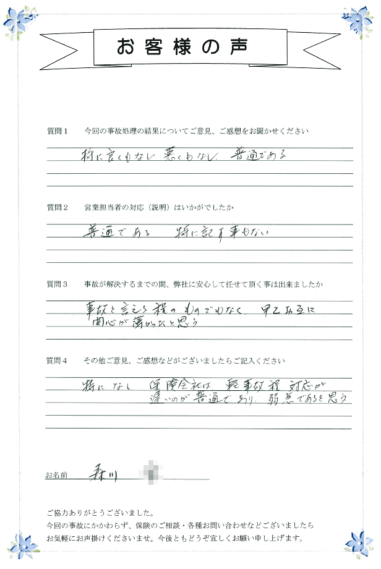 お客様の声
質問1 今回の事故処理の結果についてご意見、ご感想をお聞かせください
特に言くもない 悪くもなし 普通である
質問2 営業担当者の対応（説明）はいかがでしたか
普通である 特に記す事もない
質問3 事故が解決するまでの間、弊社に安心して任せて頂く事は出来ましたか
事故と言える程のものでもなく 甲乙お互に
関心が薄かったと思う
質問4 その他ご意見、ご感想などがございましたらご記入ください
特になし 保険会社は 軽事故程 対応が
遅いのが普通であり、弱点であると思う
お名前 森川
ご協力ありがとうございました。
今回の事故にかかわらず、保険のご相談・各種お問い合わせなどございましたら
お気軽にお声掛けくださいませ。今後ともどうぞ宜しくお願い申し上げます。